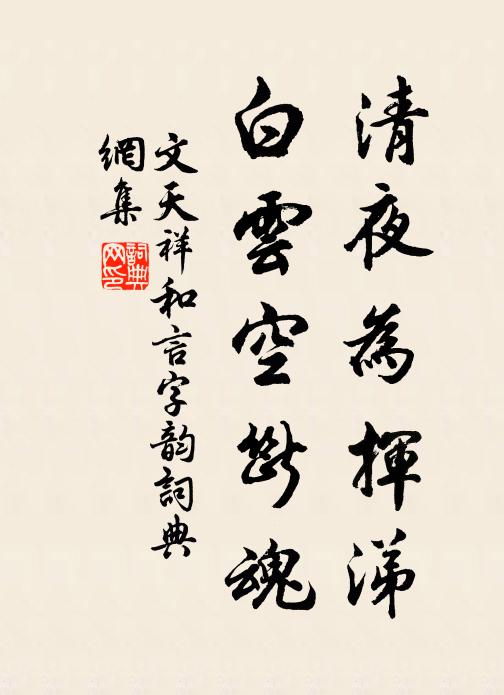 清夜為揮涕
白雲空斷魂
文天祥和言字韵詞典
網集
詞典网印